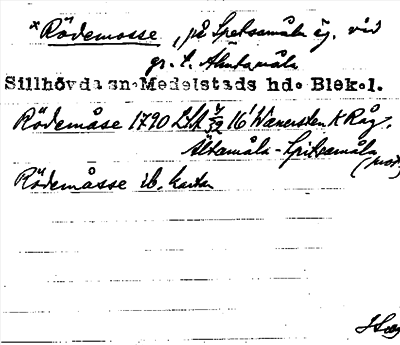 *Rödemosse, på Spetsamåla äg. vid
gr. t. Älmtamåla
Sillhövda sn. Medelstads hd. Blek.l.
Rödemåse 1790 LSA 16 Wanersten K Råg.
Ältamåla - Spitsamåla
Rödemåsse ib. kartan